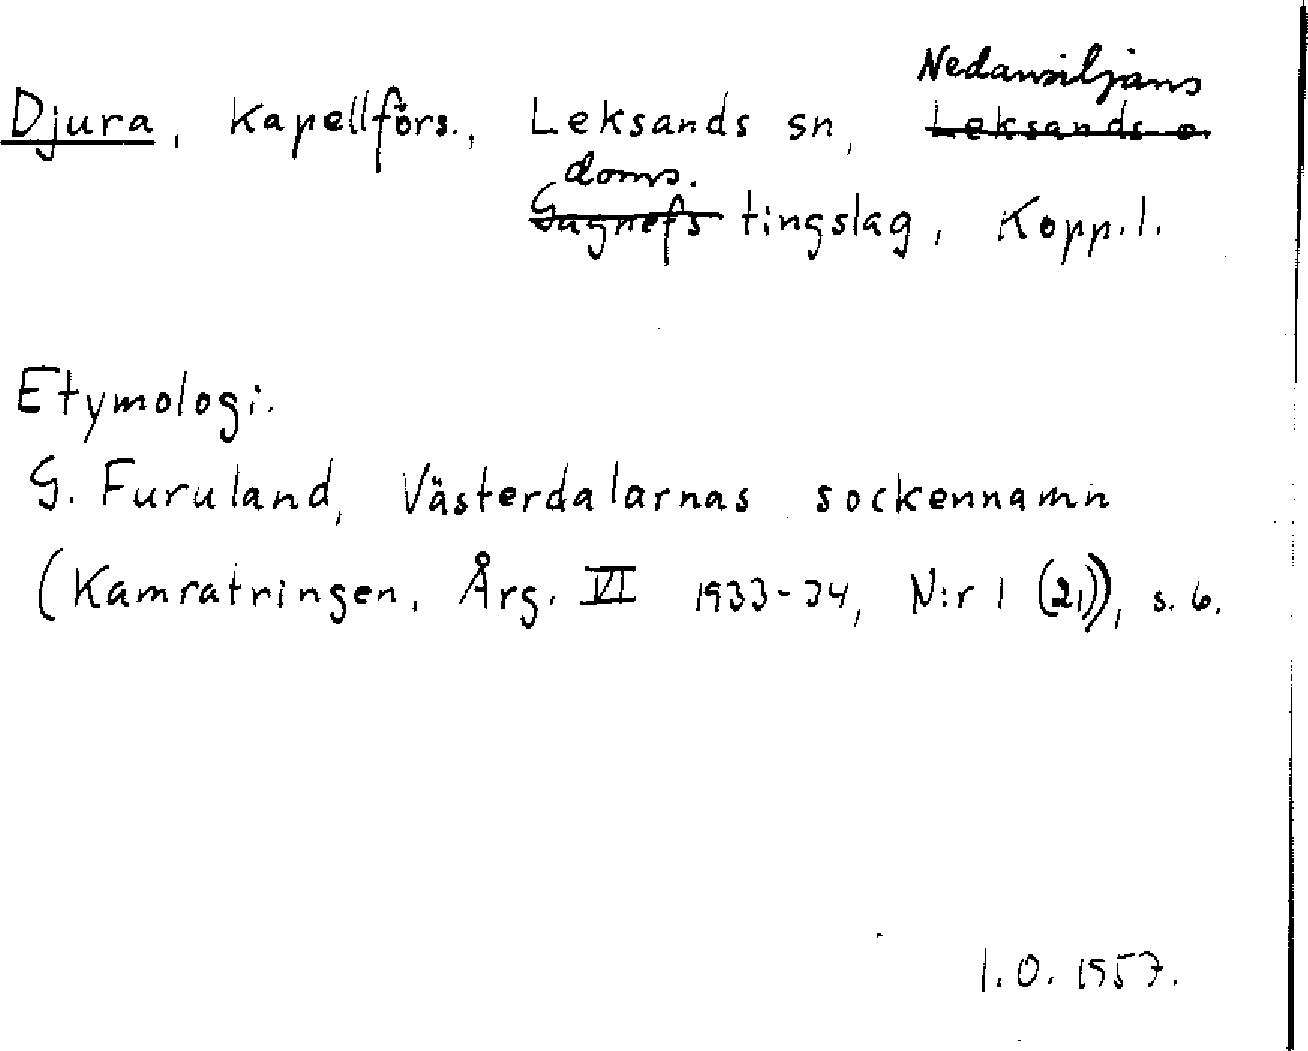 Nedansiljans
Djura, Kapellförs., Leksands sn, Leksands o.
doms.
Gagnefs tingslag, Kopp.l.
Etymologi.
G. Furuland, Västerdalarnas sockennamn
(Kamratringen, Årg. VI 1933-34, N:r 1 (21)), s. 6.
I.O. 1957.